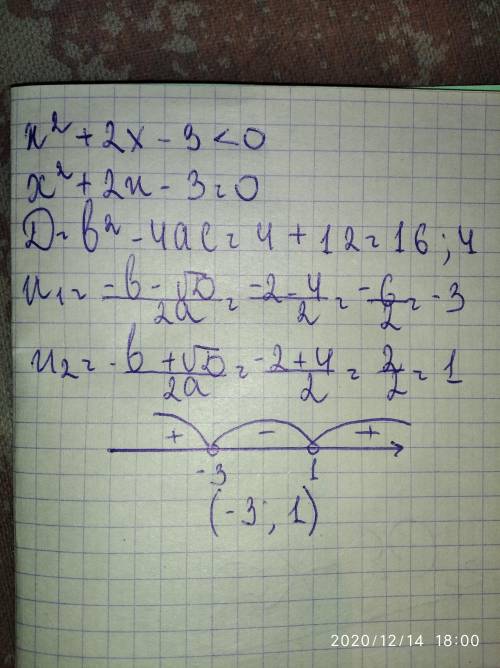 x² + 2x - 3 < 0
x² + 2x - 3 = 0
D = b² - 4ac = 4 + 12 = 16 ; 4
x₁ = -b - √D / 2a = -2 - 4 / 2 = -6 / 2 = -3
x₂ = -b + √D / 2a = -2 + 4 / 2 = 2 / 2 = 1
+ - +
-3 1
(-3 ; 1)
2020/12/14 18:00